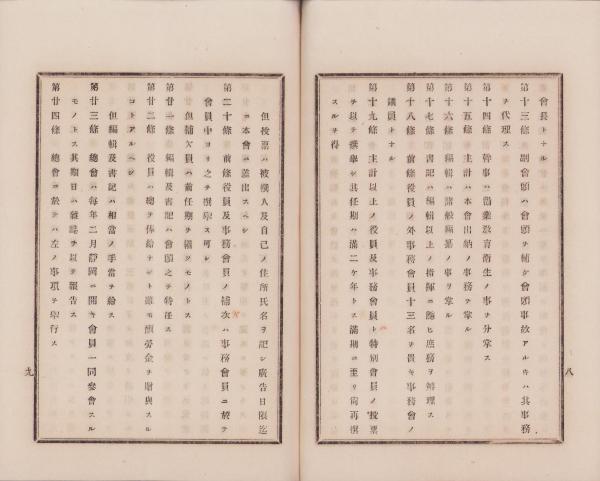 會長トナル
第十三條 副會頭ハ會頭ヲ補ケ會頭事故アルキハ其事務
ヲ代理ス
第十四條 幹事ハ勸業教育衛生ノ事ヲ分掌ス
第十五條 主計ハ本會出納ノ事務ヲ掌ル
第十六條 編輯ハ諸般編纂ノ事ヲ掌ル
第十七條 書記ハ編輯以上ノ指揮ニ隨ヒ庶務ヲ辨理ス
第十八條 前條役員ノ外事務會員十三名ヲ置キ事務會ノ
議員トナル
第十九條 主計以上ノ役員及事務會員ト特別會員ノ投票
ヲ以テ撰擧シ其任期ハ滿二ケ年トス滿期ニ至リ尚再撰
スルヲ得
八
但投票ハ被撰人及自己ノ住所氏名ヲ記シ廣告日限迄
ニ本會ヘ差出スヘシ
第二十條 前條役員及事務會員ノ補次ハ事務會員ニ於テ
會員中ヨリ之ヲ撰擧ス可シ
但補欠員ハ前任期ヲ襲クモノトス
第廿一條 編輯及書記ハ會頭之ヲ特任ス
第廿二條 役員ハ總テ俸給ナシト雖モ酬勞金ヲ附與スル
コトアルヘシ
但編輯及書記ハ相當ノ手當ヲ給ス
第廿三條 總會ハ毎年二月靜岡ニ開キ會員一同參會スル
モノトス其期日ハ雜誌ヲ以テ報告ス
第廿四條 總會ニ於テハ左ノ事項ヲ擧行ス
九